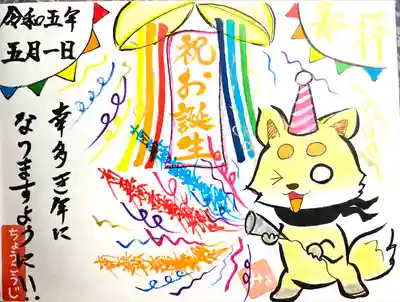 奉拝
祝お誕生
令和五年
五月一日
幸多き年に
なりますように!!
ちょうこうじ